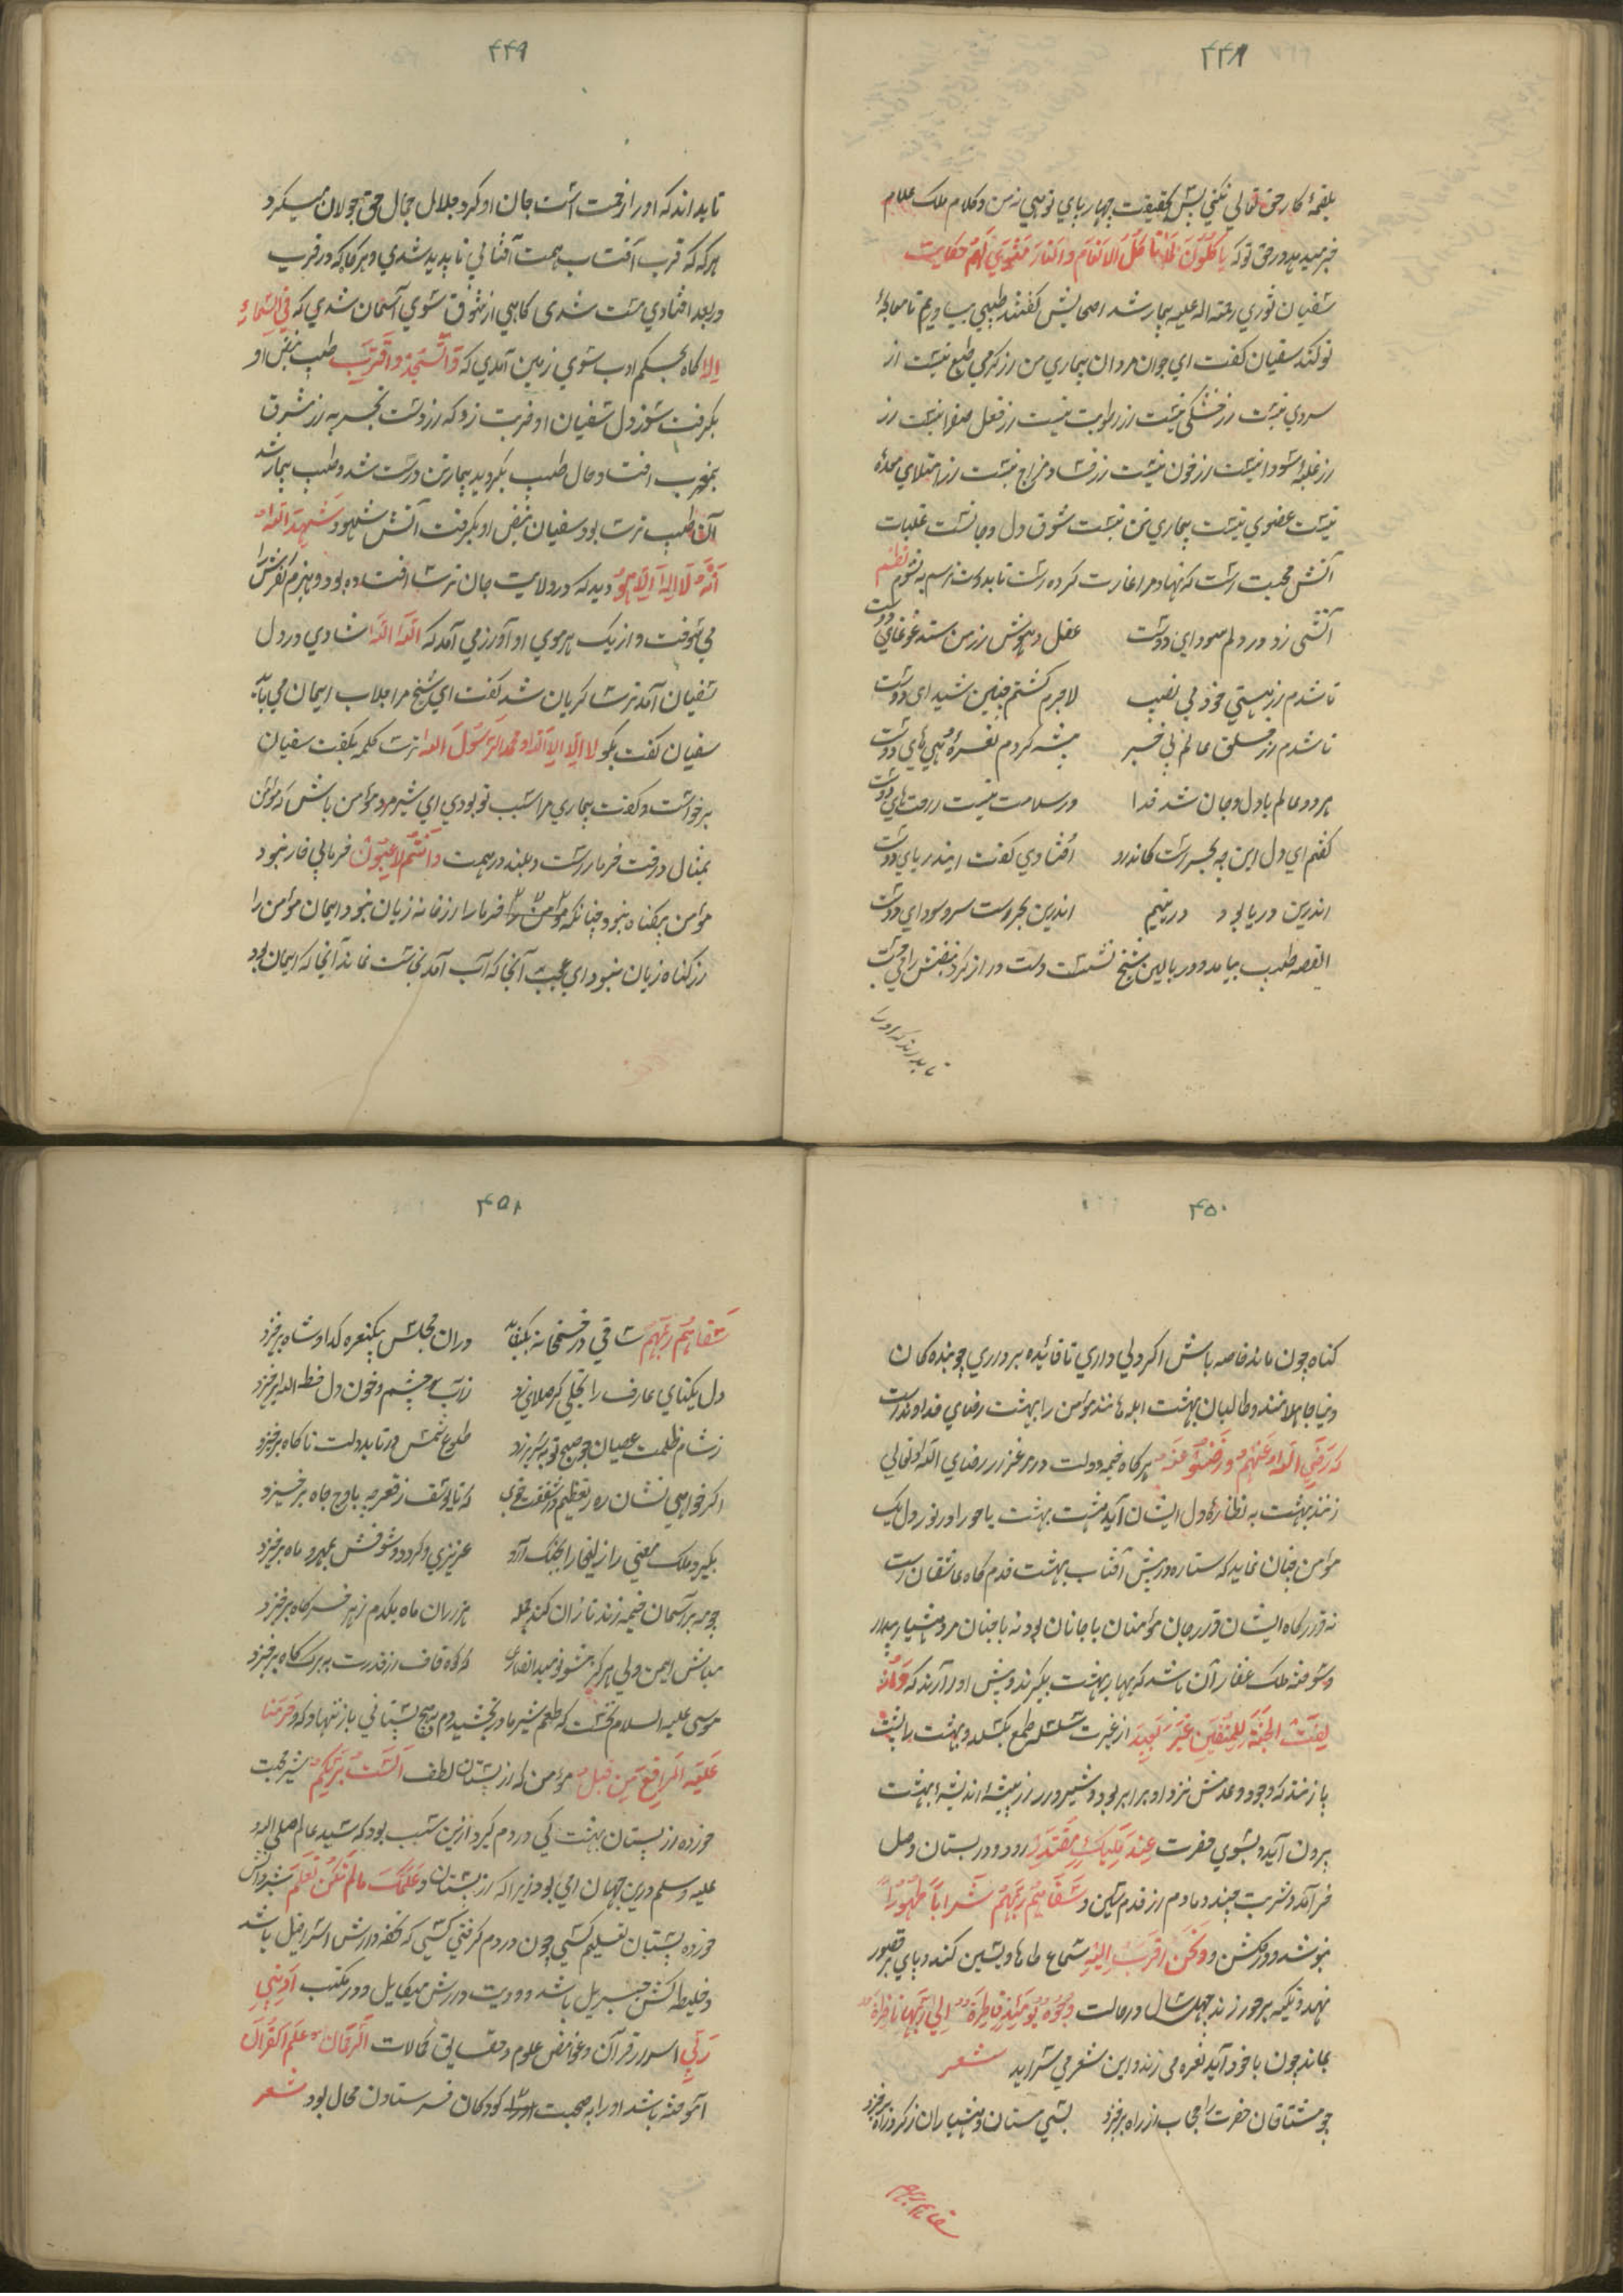 ۴۴۸
بلقمهٔ کار حق تعالی نکنی پس بحقیقت چهارپای توهی نه من و کلام ملک علام
خبر میدهد در حق تو که یاکلون کما تاکل الانعام والنار مثوی لهم حکایت
سفیان ثوری رحمة اله علیه بیمار شد اصحابش گفتند طبیبی بیاوریم تا معالجهٔ
تو کند سفیان گفت ای جوان مردان بیماری من از گرمی طبع نیست از
سردی نیست از خشکی نیست از رطوبت نیست از فعل صفرا نیست از
از غلبهٔ سودا نیست از خون نیست از فساد مزاج نیست از امتلای معده
نیست عضوی نیست بیماری تن نیست شوق دل و جانست غلبات
آتش محبت است که نهاد مرا غارت کرده است تا بدوست رسم به نشوم نظم
آتشی زد در دلم سودای دوست
عقل و هوش از من ستد غوغای دوست
تا شدم از هستی خود بی نصیب
لاجرم گشتم چنین شیدای دوست
تا شدم از خلق عالم بی خبر
پیشه کردم نعره و هیهای دوست
هر دو عالم با دل و جان شد فدا
در سلامت نیست راحتهای دوست
گفتم ای دل این چه بحرست کاندرو
افتادی گفت اینذ ریای دوست
اندرین دریا بود در یتیم
اندرین بحروست سر سودای دوست
القصه طبیب بیامد و بر بالین شیخ نشست دست دراز کرد نبضش را می جست
تا بداند که او را
۴۴۹
تا بداند که او را زخمت است جان او کرد جلال جمال حق جولان میکرد
هرکه که قرب آفتاب همت آفتابی ناپدید شدی و هر گاه که در قرب
و بعد افتادی مست شدی گاهی از شوق سوی آسمان شدی که فی السماء
الا گاه بحکم ادب سوی زمین آمدی که واسجد واقترب طبیب نبض او
بگرفت سوز دل سفیان او ضربت زد که از دست تجربه از مشرق
بمغرب افتاد حال طبیب بگردید بیمار تن درست شد و طبیب بیمار شد
آن طبیب ترسا بود سفیان نبض او بگرفت آتش شهود شهد الله
انه لا اله الا هو دید که در ولایت جان ترسا افتاده بود و هیزم کفرش را
می سوخت و از یک هر موی او آواز می آمد که الله الله شادی در دل
سفیان آمد ترسا گریان شد گفت ای شیخ مرا جلاب ایمان می باید
سفیان گفت بگو لا اله الا الله و محمد الرسول الله ترسا کلمه بگفت سفیان
برخواست و گفت بیماری مرا سبب تو بودی ای شیرمرد مؤمن باش که مؤمن
بمثال درخت خرمارست و بلند در همت وانتم الاعلون خرما بی خار نبود
مؤمن بیگناه نبود چنانکه خرما را از خار زیان نبود ایمان مؤمن را
از گناه زیان نبود ای عجب آنجا که آب آمد نجاست نماند آنجا که ایمان بود
۴۵۰
گناه چون ماند خاصه باش اگر دلی داری تا فائیده برداری جوینده کان
دنیا جاهلانند و طالبان بهشت ابلهانند مؤمن را بهشت رضای خداوندست
که رضی الله عنهم و رضوا عنه هرگاه خیمه دولت در مرغزار رضای الله تعالی
زنند بهشت به نظارهٔ دل ایشان آید هشت بهشت با حورا و نور دل یک
مؤمن چنان نماید که ستاره در پیش آفتاب بهشت قدم گاه عاشقان است
نه قرارگاه ایشان قرار جان مؤمنان با جانان بود نه با جنان مرد هشیار بیدار
و سوخته ملک غفار آن باشد که بهار بهشت بگیرند و پیش او آرند که وازلفت
لفت الجنة للمتقین غیر بعید از غیرت سلسله طمع بگسلد و بهشت را پشت
پا زند که وجود و عدمش نزد او برابر بود و شیروار از بیشهٔ اندیشهٔ بهشت
برون آید و بسوی حضرت عند ملیک مقتدر رود و در بستان وصل
خرامد و شربت چند دمادم از قدم بتین و سقاهم ربهم شرابا طهورا
نوشد و در گلشن و نحن اقرب الیه سماع طاها و یسین کند و پای بر قصور
نهد و تکیه بر حور زند چهل سال در حالت وجوه یومئذ ناضرة الی ربها ناظرة
بماند چون با خود آید نعره می زند و این شعر می سراید شعر
چو مشتاقان حضرت را حجاب از راه برخیزد
بسی مستان و هشیاران ز گرد راه برخیزد
سقاهم ربهم
۴۵۱
سقاهم ربهم ساقی در خمخانه بگشاید
در آن مجلس بیکنعره گدا و شاه برخیزد
دل یکتای عارف را تجلی گر صلای زد
ز آب چشم و خون دل خط الله برخیزد
ز شام ظلمت عصیان چو صبح توبه سر برزد
طلوع شمس در تابد دولت ناگاه برخیزد
اگر خواهی نشان ره تعظیم و شفقت جوی
که تا یوسف ز قعر چه باوج جاه برخیزد
بگیرد ملک معنی را زلیخا را بچنگ آرد
عزیزی و گردد و شوقش بمهر و ماه برخیزد
چو مه بر آسمان خیمه زند تا زان کند جمله
هزاران ماه بیکدم ز هر خرگاه برخیزد
مباش ایمن ولی هرگز مشو نومید انصاری
که کوه قاف از قدرت به برگ کاه برخیزد
موسی علیه السلام نخست که طعم شیر مادر بچشید دم بهیچ پستانی باز ننهاد که و حرمنا
علیه المراضع من قبل مؤمن که از پستان لطف الست بربکم شیر محبت
خورده از پستان بهشت کی در دم گیرد ازین سبب بود که سید عالم صلی الله
علیه و سلم درین جهان امی بود زیرا که از پستان و علمک مالم تکن تعلم شیر دانش
خورده پستان تعلیم کسی چون در دم گرفتی کسی که تخته دارش اسرافیل باشد
و خلیطه کش جبریل باشد و دویت دارش میکاییل و در مکتب ادبنی
ربی اسرار قرآن و غوامض علوم و حقایق کمالات الرحمن علم القرآن
آموخته باشد او را به صحبت کودکان فرستادن محال بود شعر